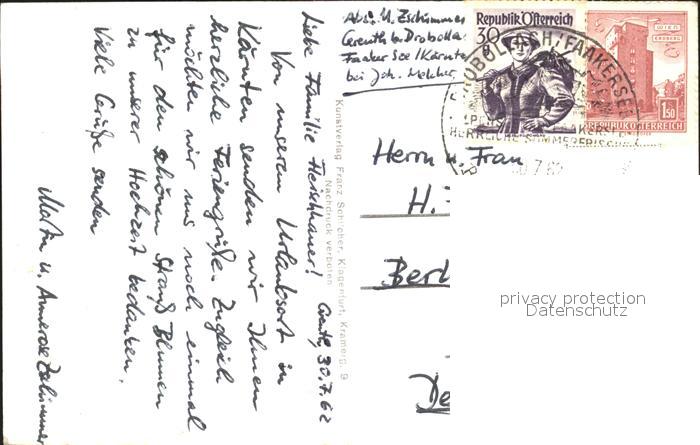 Abs. U. Zschimmer
Greuth b. Drobollach
Faaker See / Kärnten
bei Joh. Melcher,
Republik Österreich
30 g
WIEN
ERDBERG
1.50
REPUBLIK ÖSTERREICH
DROBOLLACH / FAAKERSEE
HERRLICHE SOMMERFRISCHE
30.7.62
Greuth, 30.7.62
Liebe Familie Fleischhauer!
Von unserem Urlaubsort in
Kärnten senden wir Ihnen
herzliche Feriengrüße. Zugleich
möchten wir uns noch einmal
für den schönen Strauß Blumen
zu unserer Hochzeit bedanken.
Viele Grüße senden
Martin u. Annerose Zschimmer
Kunstverlag Franz Schilcher, Klagenfurt, Kramerg. 9
Nachdruck verboten
Herrn u. Frau
H.
Berl
De
privacy protection
Datenschutz